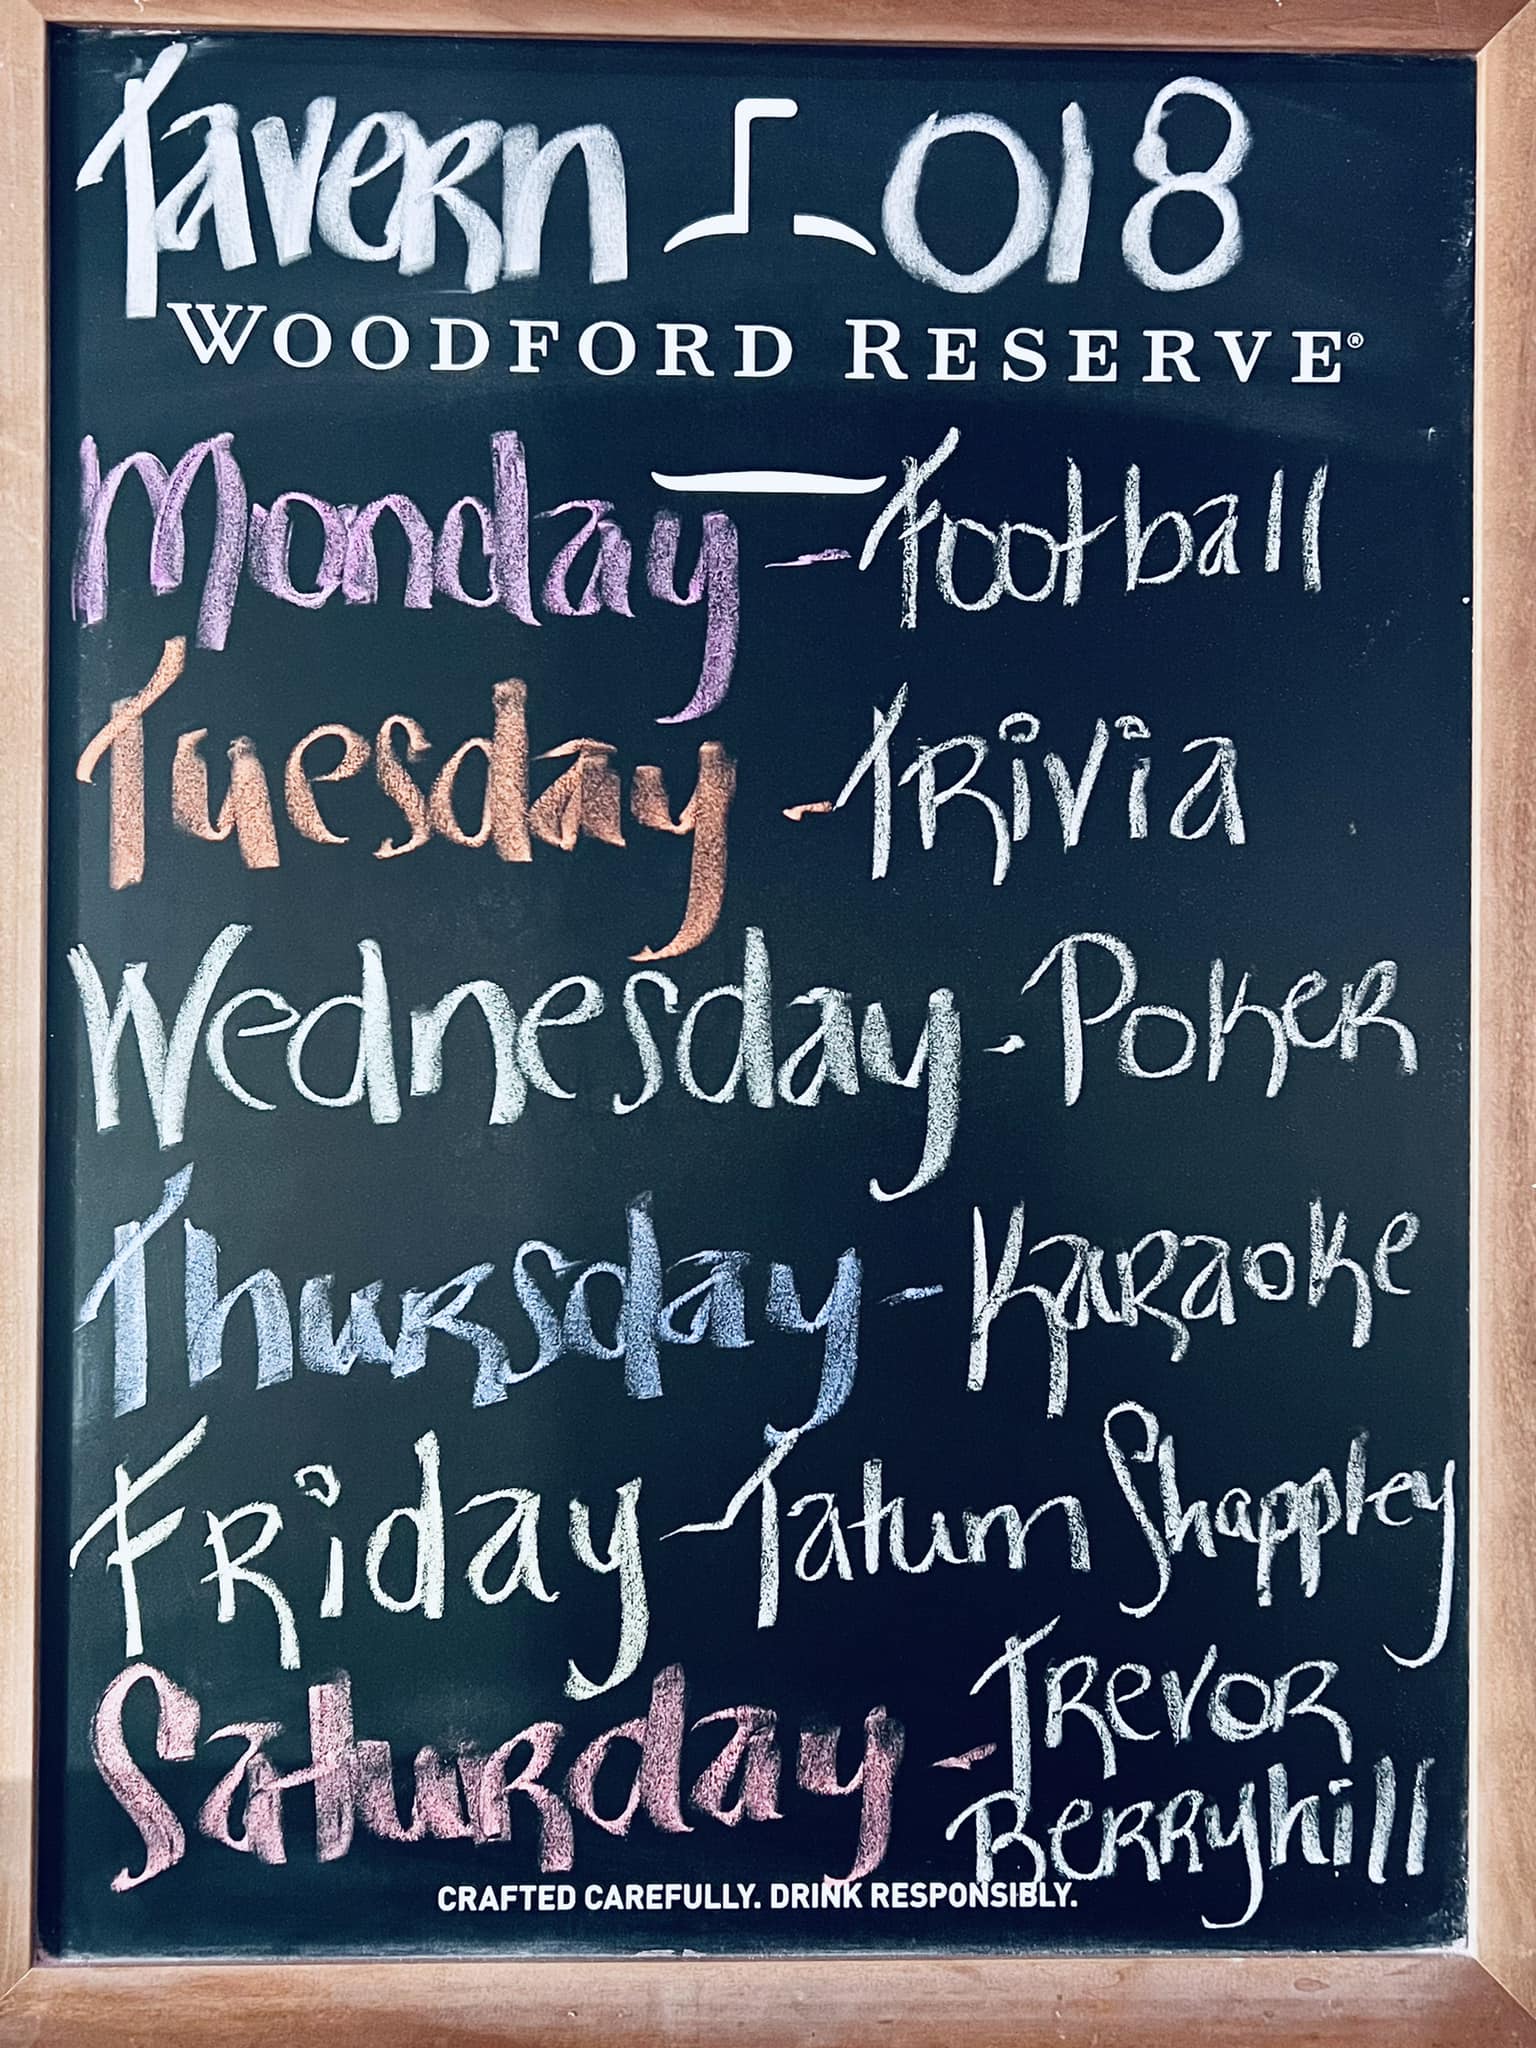 Tavern 018
WOODFORD RESERVE®
Monday - Football
Tuesday - Trivia
Wednesday - Poker
Thursday - Karaoke
Friday - Tatum Shappley
Saturday - Trevor
Berryhill
CRAFTED CAREFULLY. DRINK RESPONSIBLY.